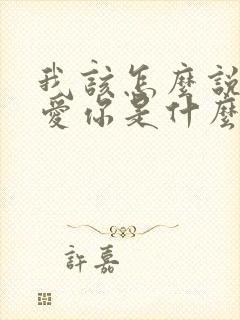 我該怎麼說
愛你是什麼
許嘉